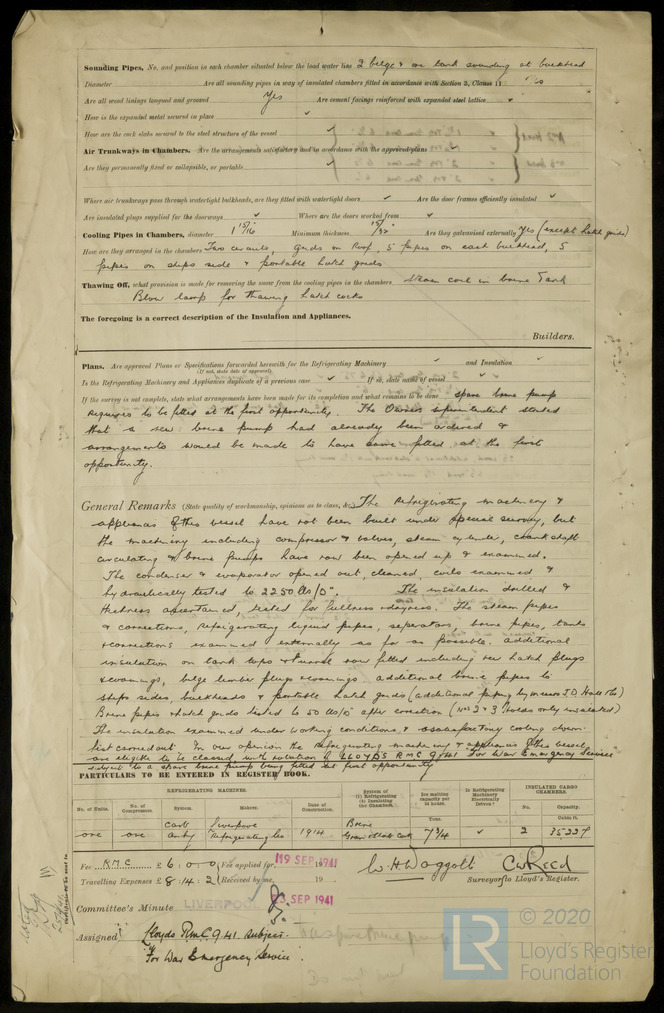 Sounding Pipes, No. and position in each chamber situated below the load water line 2 bilge & one tank sounding at bulkhead
Diameter Are all sounding pipes in way of insulated chambers fitted in accordance with Section 3, Clause 11 no
Are all wood linings tongued and grooved Yes Are cement facings reinforced with expanded steel lattice
How is the expanded metal secured in place
How are the cork slabs secured to the steel structure of the vessel
Air Trunkways in Chambers. Are the arrangements satisfactory and in accordance with the approved plans
Are they permanently fixed or collapsible, or portable
Where air trunkways pass through watertight bulkheads, are they fitted with watertight doors Are the door frames efficiently insulated
Are insulated plugs supplied for the doorways Where are the doors worked from
Cooling Pipes in Chambers, diameter 1 15/16 Minimum thickness Are they galvanised externally Yes (except hatch grids)
How are they arranged in the chambers Two circuits, grids on Roof, 5 pipes on each bulkhead, 5
pipes on ships side & portable hatch grids
Thawing Off, what provision is made for removing the snow from the cooling pipes in the chambers Steam coil in brine Tank
Blow lamp for thawing hatch cocks
The foregoing is a correct description of the Insulation and Appliances.
Builders.
Plans. Are approved Plans or Specifications forwarded herewith for the Refrigerating Machinery and Insulation
(If not, state date of approval)
Is the Refrigerating Machinery and Appliances duplicate of a previous case If so, state name of vessel
If the survey is not complete, state what arrangements have been made for its completion and what remains to be done spare brine pump
requires to be fitted at the first opportunity. The Owners superintendent stated
that a new brine pump had already been ordered &
arrangements would be made to have same fitted at the first
opportunity.
General Remarks (State quality of workmanship, opinions as to class, &c. The Refrigerating machinery &
appliances of this vessel have not been built under special survey, but
the machinery including compressor & valves, steam cylinder, crank shaft
circulating & brine pumps have now been opened up & examined.
The condenser & evaporator opened out, cleaned, coils examined &
hydraulically tested to 2250 lbs/□". The insulation drilled &
thickness ascertained, tested for fullness & dryness. The steam pipes
& connections, refrigerating liquid pipes, separators, brine pipes, tanks
& connections examined externally as far as possible. Additional
insulation on tank tops & tunnel now fitted including new hatch plugs
& coamings, bilge limber plugs & coamings. Additional brine pipes to
ships sides, bulkheads & portable hatch grids (additional piping by Messrs J.D. Hall & Co)
Brine pipes & hatch grids tested to 50 lbs/□" after correction (Nos 2 & 3 holds only insulated)
The insulation examined under working conditions & a satisfactory cooling down
test carried out. In our opinion the Refrigerating machinery & appliances of this vessel
are eligible to be classed with notation of LLOYDS RMC 9.41 For War Emergency Service
subject to a spare brine pump being fitted the first opportunity
PARTICULARS TO BE ENTERED IN REGISTER BOOK.
REFRIGERATING MACHINES.
No. of Units. No. of Compressors. System. Makers. Date of Construction. System of (1) Refrigerating (2) Insulating the Chambers. Ice melting capacity per 24 hours. Is Refrigerating Machinery Electrically Driven? INSULATED CARGO CHAMBERS. No. Capacity.
Tons. Cubic ft.
one one Carb Anhy Liverpool Refrigerating Co 1914 Brine 7 3/4 2 35227
Fee RMC £6.0.0 Fee applied for, 19 SEP 1941
Travelling Expenses £8.14.2 Received by me, 19
W.H. Waggott C.W. Reed
Surveyors to Lloyd's Register.
Committee's Minute LIVERPOOL 23 SEP 1941
Assigned Lloyds RMC 9.41 subject.
"For War Emergency Service"
© 2020
LR
Lloyd's Register
Foundation